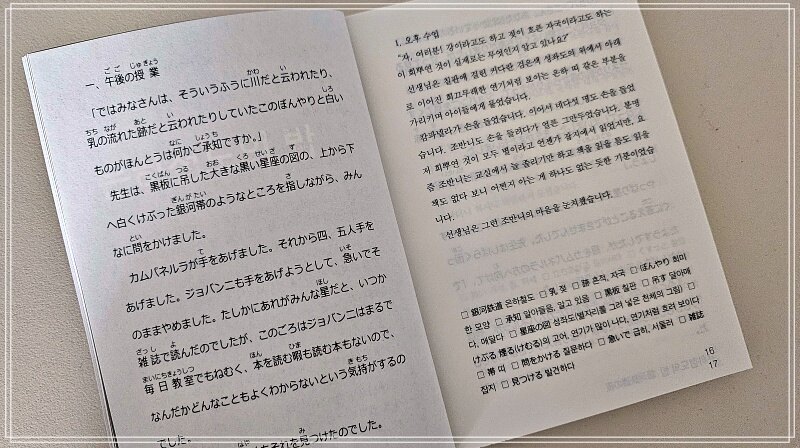 一、午後の授業
「ではみなさんは、そういうふうに川だと云われたり、
乳の流れた跡だと云われたりしていたこのぼんやりと白い
ものがほんとうは何かご承知ですか。」
先生は、黒板に吊した大きな黒い星座の図の、上から下
へ白くけぶった銀河帯のようなところを指しながら、みん
なに問をかけました。
カムパネルラが手をあげました。それから四、五人手を
あげました。ジョバンニも手をあげようとして、急いでそ
のままやめました。たしかにあれがみんな星だと、いつか
雑誌で読んだのでしたが、このごろはジョバンニはまるで
毎日教室でもねむく、本を読む暇も読む本もないので、
なんだかどんなこともよくわからないという気持がするの
でした。
それを見つけたのでした。
1. 오후 수업
"자, 여러분! 강이라고도 하고 젖이 흐른 자국이라고도 하는
이 희뿌연 것이 실제로는 무엇인지 알고 있나요?"
선생님은 칠판에 걸린 커다란 검은색 성좌도의 위에서 아래
로 이어진 희끄무레한 연기처럼 보이는 은하 띠 같은 부분을
가리키며 아이들에게 물었습니다.
캄파넬라가 손을 들었습니다. 이어서 네다섯 명도 손을 들었
습니다. 조반니도 손을 들려다가 얼른 그만두었습니다. 분명
저 희뿌연 것이 모두 별이라고 언젠가 잡지에서 읽었지만, 요
즘 조반니는 교실에서 늘 졸리기만 하고 책을 읽을 틈도 읽을
책도 없다 보니 어쩐지 아는 게 하나도 없는 듯한 기분이었습
니다.
선생님은 그런 조반니의 마음을 눈치챘습니다.
□ 銀河鉄道 은하철도 □ 乳 젖 □ 跡 흔적, 자국 □ ぼんやり 희미
한 모양 □ 承知 알아들음, 알고 있음 □ 黒板 칠판 □ 吊す 달아매
다, 매달다 □ 星座の図 성좌도(별자리를 그려 넣은 천체의 그림) □
けぶる 煙る(けむる)의 고어, 연기가 많이 나다, 연기처럼 흐려 보이다
□ 帯 띠 □ 問をかける 질문하다 □ 急いで 급히, 서둘러 □ 雑誌
잡지 □ 見つける 발견하다
16
17